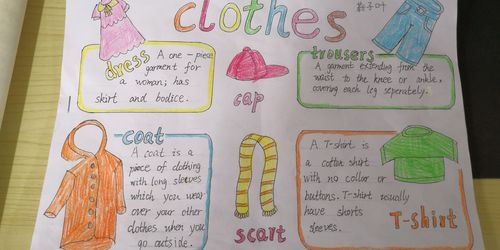 clothes
dress
A one-piece
garment for
a woman; has
skirt and bodice.
cap
trousers
A garment extending from the
waist to the knee or ankle,
covering each leg seperately.
coat
A coat is a
piece of clothing
with long sleeves
which you wear
over your other
clothes when you
go outside.
scart
A T-shirt is
a cotton shirt
with no collar or
buttons. T-shirt usually
have shorts
sleeves.
T-shirt